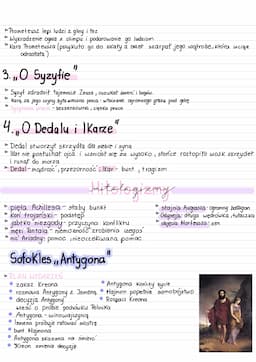 Prometeusz lepi ludzi z gliny i łez
Wykradzenie ognia z olimpu i podarowanie go ludziom
Kara Prometeusza (przykuto go do skały a sęp szarpał jego wątrobę, która wciąż odrastała)
3. „O Syzyfie"
Syzyf zdradził tajemnice Zeusa, oszukał śmierć i bogów
Kara za jego czyny była wieczna praca - wtaczanie ogromnego głazu pod górę
Syzyfowa praca - bezsensowna, ciężka praca
4. „O Dedalu i Ikarze"
Dedal stworzył skrzydła dla siebie i syna
Ikar nie posłuchał ojca i wzniósł się za wysoko, słońce roztopiło wosk skrzydeł i runął do morza
Dedal - mądrość, przezorność, Ikar - bunt, tragizm
Mitologizmy
pięta Achillesa - słaby punkt
koń trojański - podstęp
jabłko niezgody - przyczyna konfliktu
męki Tantala - niemożność
nić Ariadny - pomoc, nieoczekiwana pomoc
stajnia Augiasza - ogromny bałagan
Odyseja - długa wędrówka, tułaczka
Sofokles „Antygona"
PLAN WYDARZEŃ
zakaz Kreona
rozmowa Antygony z Ismeną
decyzja Antygony
wieść o próbie pochówku Polinika
Antygona - winowajczynią
Ismena próbuje ratować siostrę
bunt Hajmona
Antygona skazana na śmierć
Kreon zmienia decyzję
Antygona kończy życie
Hajmon popełnia samobójstwo
Rozpacz Kreona